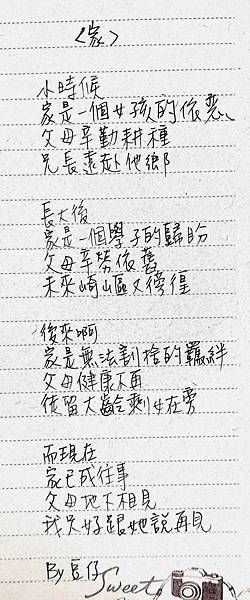 <家>
小時候
家是一個女孩的依戀
父母辛勤耕種
兄長遠赴他鄉
長大後
家是一個學子的歸盼
父母辛勞依舊
未來崎嶇又徬徨
後來啊
家是無法割捨的羈絆
父母健康不再
徒留大齡剩女在旁
而現在
家已成往事
父母地下相見
我只好跟她說再見
By 豆仔
Sweet